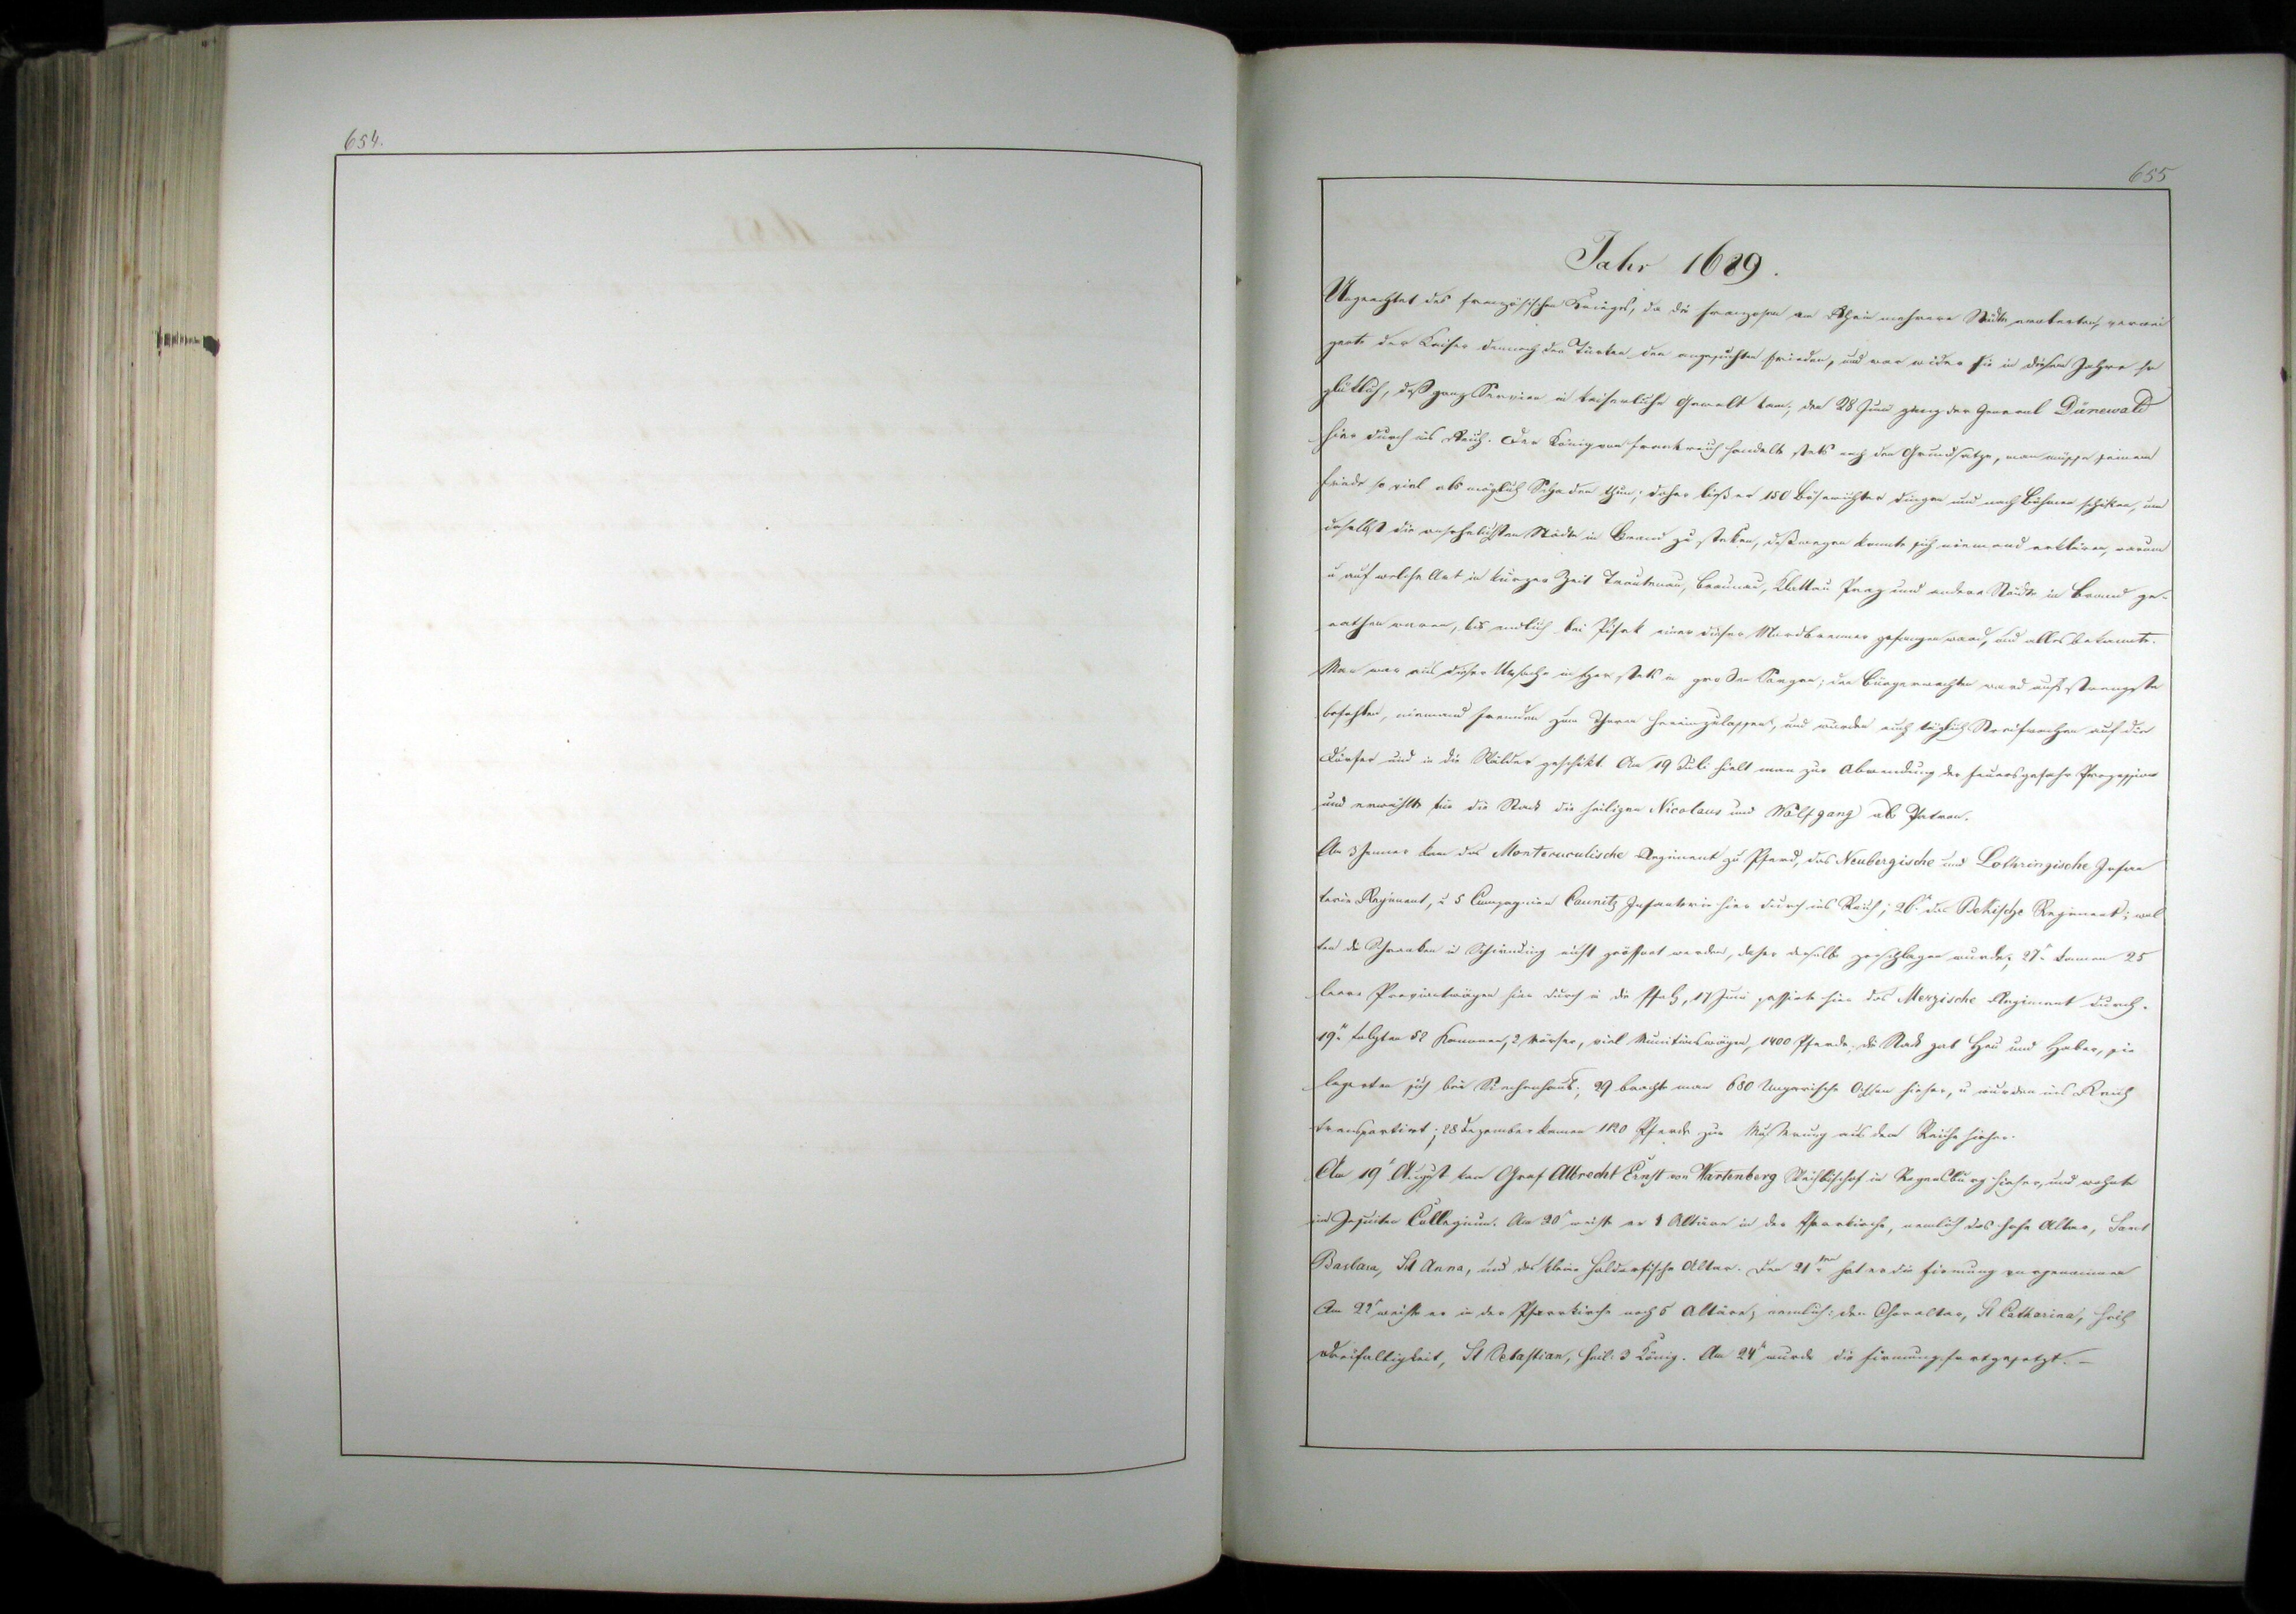 654.
655
Jahr 1689.
Ungeachtet des französischen Krieges, da die Franzosen am Rhein mehrere Städte eroberten, verwei
gerte der Kaiser dennoch den Türken den angesuchten Frieden, und war wider sie in diesem Jahre so
glüklich, daß ganz Servien in kaiserliche Gewalt kam; den 28 Juni gieng der General Dünewald
hier durch ins Reich. Der König von Frankreich handelte stets nach dem Grundsatze, man müsse seinem
Feinde so viel als möglich Schaden thun; daher ließ er 150 Bösewichter dingen und nach Böhmen schiken, um
daselbst die ansehnlichsten Städte in Brand zu steken, deßwegen konnte sich niemand erklären, warum
u auf welche Art in kurzer Zeit Trautenau, Braunau, Klattau Prag und andere Städte in Brand ge-
rathen waren, bis endlich bei Pisek einer dieser Mordbrenner gefangen ward, und alles bekannte.
Man war aus dieser Ursache in Eger stets in großen Sorgen; den Bürgerwachten ward aufs strengste
befohlen, niemand fremden zum Thoren hereinzulassen, und wurden auch täglich Streifwachen auf die
Dörfer und in die Wälder geschikt. Am 19 Juli hielt man zur Abwendung der Feuersgefahr Prozession
und erwählte für die Stadt die heiligen Nicolaus und Wolfgang als Patron.
Am 3 Jenner kam das Montecuculische Regiment zu Pferd, das Neubergische und Lothringische Infan
terie Regiment, u 5 Compagnien Caunitz Infanterie hier durch ins Reich; 26t das Bekische Regiment; wol
ten die Schranken in Schirnding nicht geöffnet werden, daher dieselbe zerschlagen wurde; 27t kamen 25
leere Proviantwägen hier durch in die Pfalz, 17 Juni passirte hier das Merzische Regiment durch.
19t folgten 52 Kanonen, 2 Mörser, viel Munitionswägen, 1400 Pferde; die Stadt gab Heu und Haber, sie
lagerten sich bei Siechenhaus; 29 brachte man 680 Ungarische Ochsen hieher, u wurden ins Reich
transportirt; 28 Dezember kamen 1120 Pferde zur Musterung aus dem Reiche hieher.
Am 19t August kam Graf Albrecht Ernst von Wartenberg Weichbischof in Regensburg hieher, und wohnte
im Jesuiten Collegium. Am 20t weihte er 4 Altäre in der Pfarrkirche, nemlich das hohe Altar, Sanct
Barbara, St Anna, und das kleine Altar. Den 21ten hat er die Firmung vorgenommen
Am 22t weihte er in der Pfarrkirche noch 5 Altäre, nemlich: den Choraltar, St Catharina, heil
Dreifaltigkeit, St Sebastian, heil: 3 König. Am 24t wurde die Firmung fortgesetzt. –